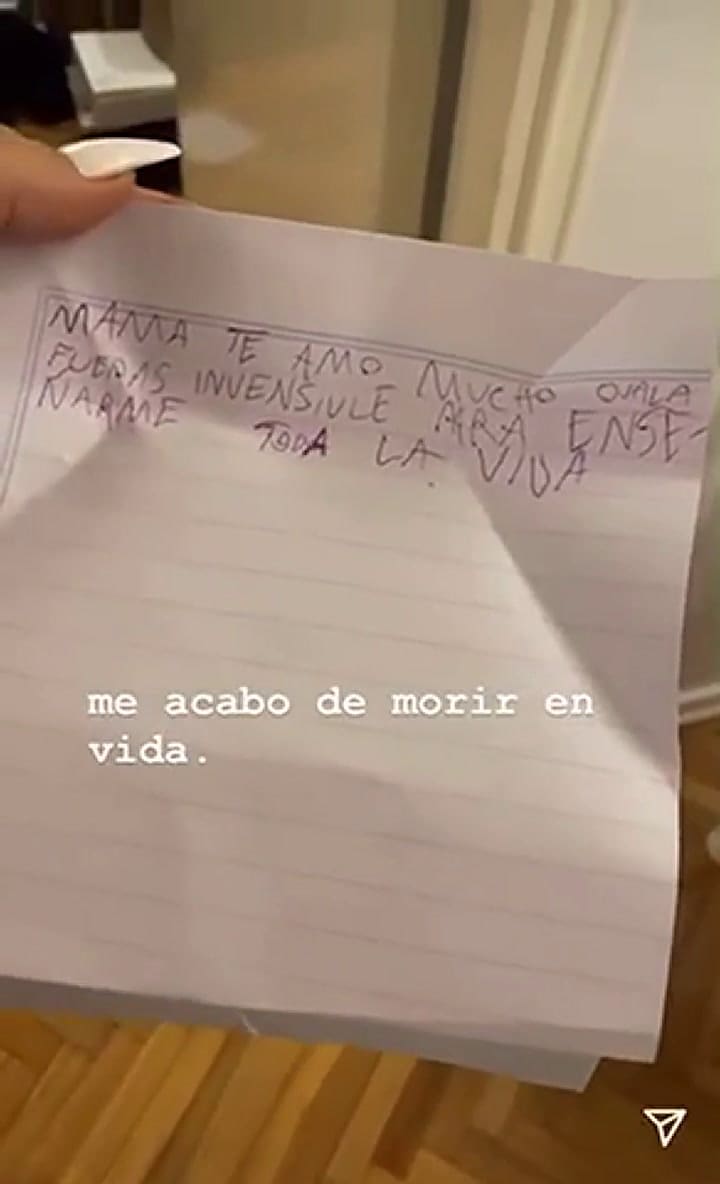 MAMA TE AMO MUCHO OJALA
FUERAS INVENSIVLE PARA ENSE-
NARME TODA LA VIDA
me acabo de morir en
vida.